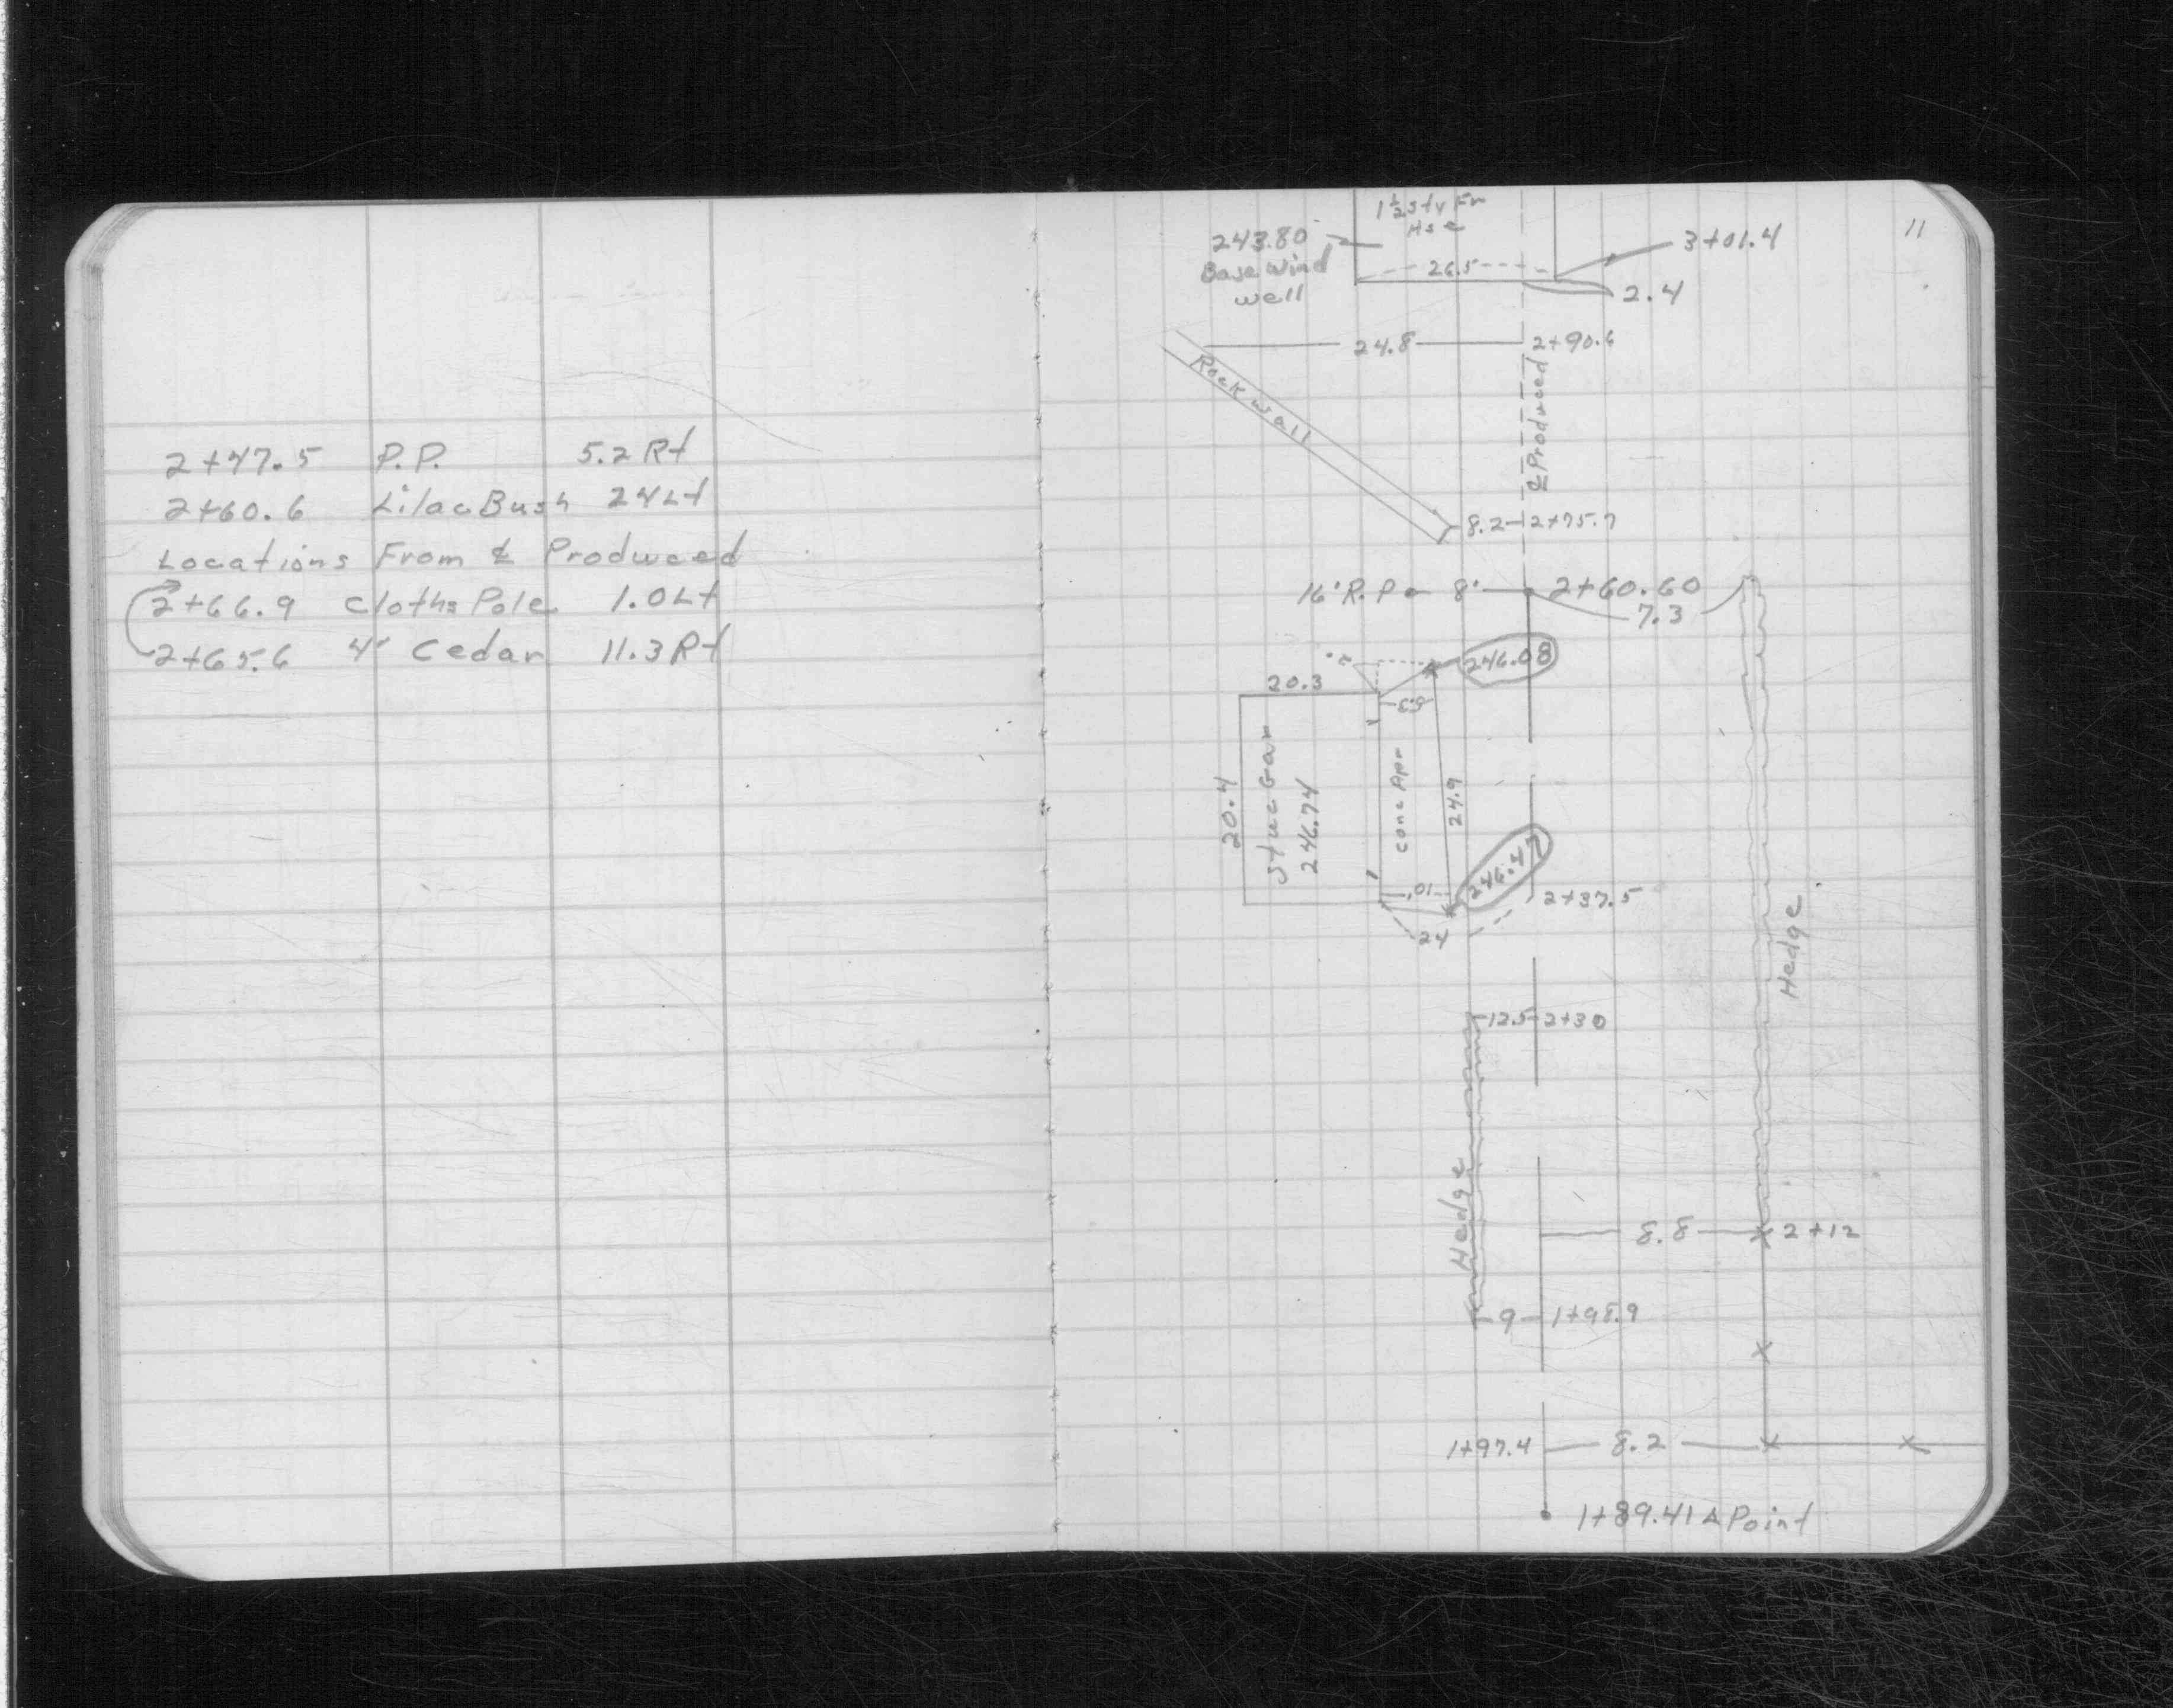 2+47.5 P.P. 5.2 Rt
2+60.6 Lilac Bush 24 Lt
Locations From ℄ Produced
2+66.9 Cloths Pole 1.0 Lt
2+65.6 4" Cedar 11.3 Rt
11
1½ Sty Fr
Hse
243.80
Base Wind
well
26.5
3+01.4
2.4
24.8 2+90.6
Rock wall
℄ Produced
8.2 2+75.7
16' R.P. 8' 2+60.60
7.3
246.08
20.3
20.4
Stuc Gar
246.74
Conc Apr
24.9
10'
246.47
2+37.5
24
Hedge
12.5 2+30
Hedge
8.8 2+12
9 1+98.9
1+97.4 8.2
1+89.41 ∆ Point